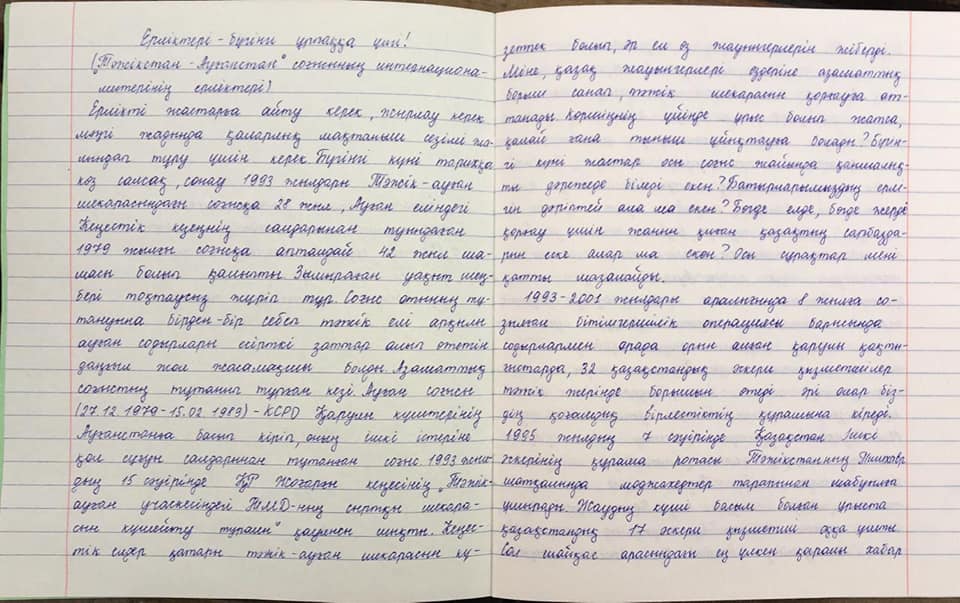 Ерліктері - бүгінгі ұрпаққа үлгі!
("Тәжікстан - Ауғанстан" соғысының интернациона-
листерінің ерліктері)
Ерлікті жастарға айту керек, жырлау керек
мәңгі жадында қаларлық мақтаныш сезімі жа-
лындап тұру үшін керек. Бүгінгі күні тарихқа
көз салсақ, сонау 1993 жылдары Тәжік-ауған
шекарасындағы соғысқа 28 жыл, Ауған еліндегі
Кеңестік кезеңнің салдарынан туындаған
1979 жылғы соғысқа аттандай 42 жыл ша-
масы болып қалыпты. Зымыраған уақыт шең-
бері тоқтаусыз жүріп тұр. Соғыс отының тұ-
тануына бірден-бір себеп тәжік елі арқылы
ауған содырлары есірткі заттар алып өтетін
даңғыл жол жасамақшы болды. Азаматтық
соғыстың тұтанып тұрған кезі. Ауған соғысы
(27.12.1979-15.02.1989) - КСРО Қарулы күштерінің
Ауғанстанға басып кіріп, оның ішкі істеріне
қол сұғуы салдарынан тұтанған соғыс. 1993 жыл-
дың 15 сәуірінде ҚР Жоғарғы кеңесінің "Тәжік-
ауған учаскесіндегі ТМД-ның сыртқы шекара-
сын күшейту туралы" қаулысы шықты. Кеңес-
тік елдер қатары тәжік-ауған шекарасын кү-
зетпек болып, әр ел өз жауынгерлерін жіберді.
Міне, қазақ жауынгерлері өздеріне азаматтық
борыш санап, тәжік шекарасын қорғауға ат-
танады. Көршіңнің үйінде ұрыс болып жатса,
қалай ғана тыныш ұйықтауға болады? Бүгін-
гі күні жастар осы соғыс жайында қаншалық-
ты дәрежеде біледі екен? Батырларымыздың ерлі-
гін дәріптей ала ма екен? Бөгде елде, бөгде жерді
қорғау үшін жанын қиған қазақтың сарбазда-
рын еске алар ма екен? Осы сұрақтар мені
қатты мазалайды.
1993-2001 жылдары аралығында 8 жылға со-
зылған бітімгершілік операциясы барысында
содырлармен арада орын алған қарулы қақты-
ғыстарда, 32 қазақстандық әскери қызметшілер
тәжік жерінде борышын өтеді әрі олар біз-
дің қоғамдық бірлестіктің құрамына кіреді.
1995 жылдың 7 сәуірінде Қазақстан Ішкі
әскерінің құрама ротасы Тәжікстанның
шатқалында моджахедтер тарапынан шабуылға
ұшырады. Жаудың күші басым болған ұрыста
қазақстандық 17 әскери қызметші оққа ұшты.
Бұл шайқас арасындағы ең үлкен қаралы хабар